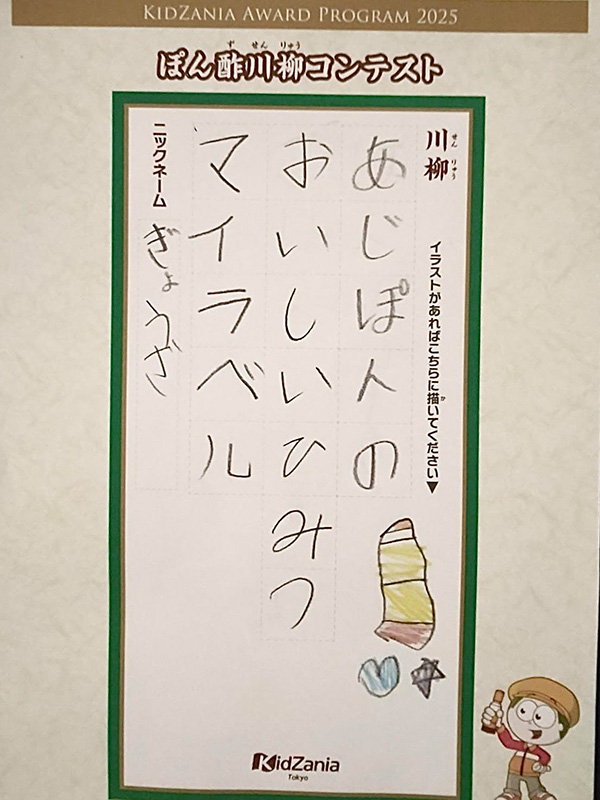 KIDZANIA AWARD PROGRAM 2025
ぽん酢川柳コンテスト
ず せん りゅう
川柳
せん りゅう
イラストがあればこちらに描いてください▼
か
あじぽんの
おいしいひみつ
マイラベル
ニックネーム
ぎょうざ
KidZania
Tokyo